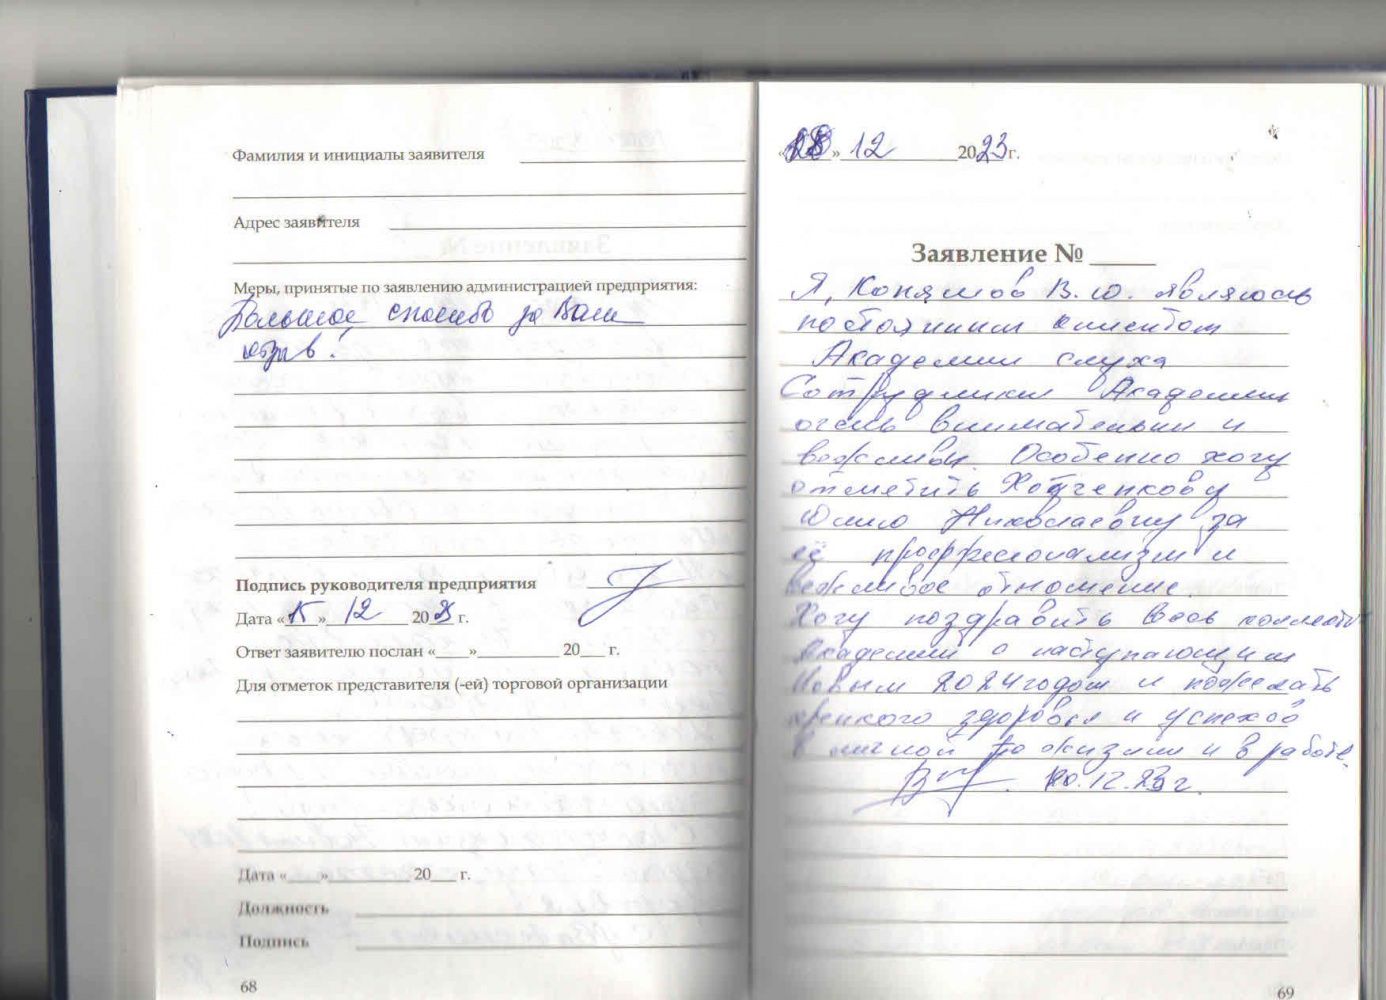 Фамилия и инициалы заявителя
Адрес заявителя
Меры, принятые по заявлению администрацией предприятия:
Большое спасибо за Ваш
отзыв!
Подпись руководителя предприятия
Дата « » 12 20 г.
Ответ заявителю послан «___»_________ 20___ г.
Для отметок представителя (-ей) торговой организации
Дата «___»_________ 20___ г.
Должность
Подпись
68
« » 12 2023 г.
Заявление № _____
Я, В.Ю. являюсь
постоянным клиентом
Академии слуха
Сотрудники Академии
очень внимательны и
вежливы. Особенно хочу
отметить
Юлию Николаевну за
её профессионализм и
вежливое отношение.
Хочу поздравить весь коллектив
Академии с наступающим
Новым 2024 годом и пожелать
крепкого здоровья и успехов
в личной жизни и в работе.
12.23г.
69